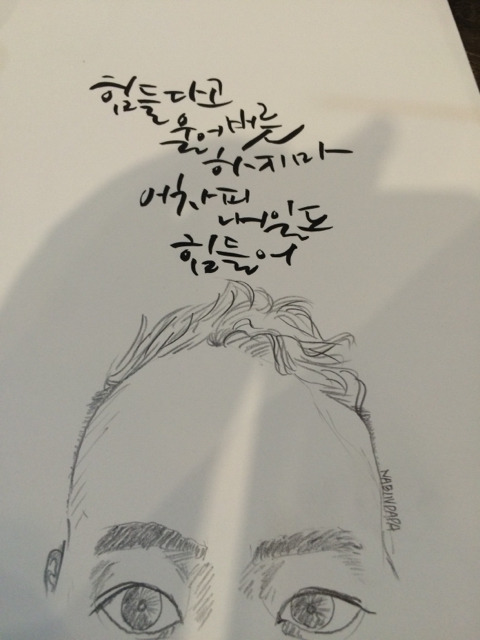 힘들다고
울어버릇
하지마
어차피
내일도
힘들어
NABIVDAPA